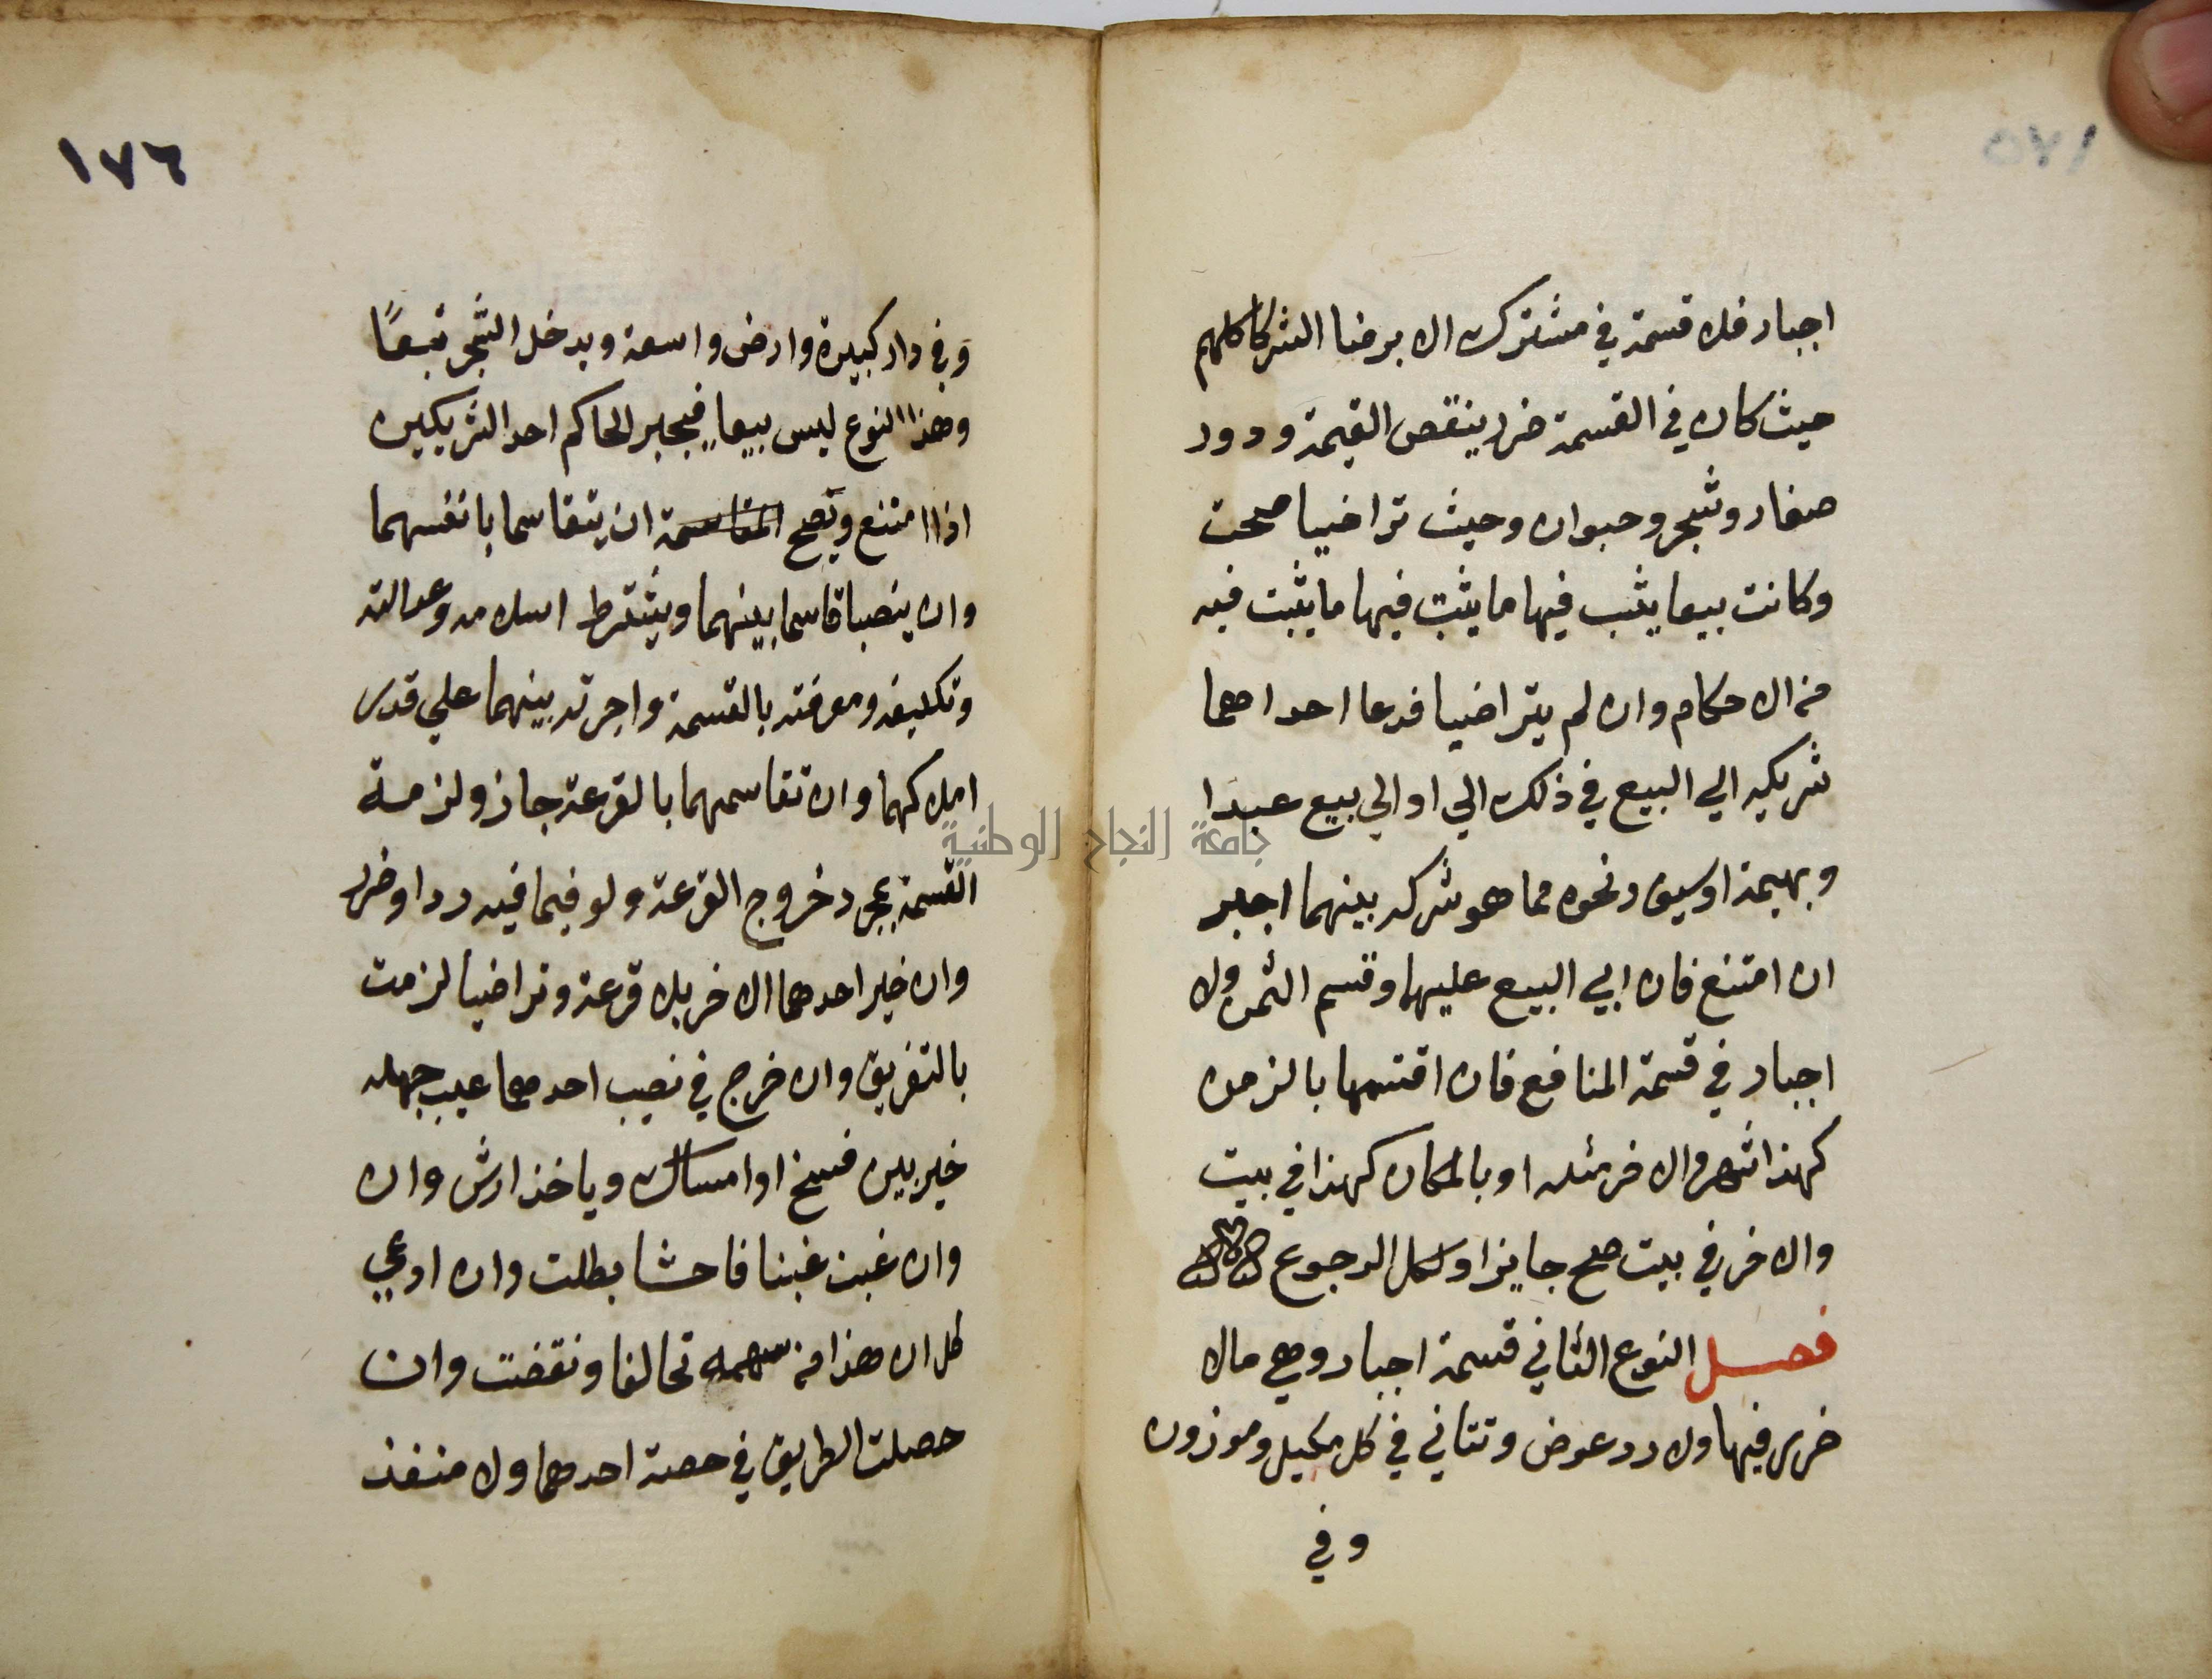 ١٧٥
اجبار فلا قسمة في مشترك الا برضا الشركا كلهم
حيث كان في القسمة ضرر ينقص القيمة ودور
صغار وشجر وحيوان وحيث تراضيا صحت
وكانت بيعا يثبت فيها ما يثبت فيها ما يثبت فيه
من الاحكام وان لم يتراضيا فدعا احداهما
شريكه الي البيع في ذلك الي او الي بيع عبدا
وبهيمة او سيف ونحوه مما هو شركه بينهما اجبر
ان امتنع فان ابي البيع عليهما وقسم الثمن ولا
اجبار في قسمة المنافع فان اقتسمها بالزمن
كهذا شهر والاخر مثله او بالمكان كهذا في بيت
والاخر في بيت صح جايزا ولكل الرجوع
فصل النوع الثاني قسمة اجبار وهي مالا
ضرر فيها ولا رد عوض وتتاني في كل مكيل وموزون
وفي
١٧٦
وفي دار كبيرة وارض واسعة ويدخل الشجر تبعًا
وهذا النوع ليس بيعا فيجبر الحاكم احد الشريكين
اذا امتنع وتصح المقاسمة ان يتقاسما بانفسهما
وان ينصبا قاسما بينهما ويشترط اسلامه وعدالته
وتكليفه ومعرفته بالقسمة واجرته بينهما علي قدر
املاكهما وان تقاسمهما بالقرعة جاز ولزمة
القسمة بمجرد خروج القرعة ولو فيما فيه رد او ضرر
وان خير احدهما الاخر بلا قرعة وتراضيا لزمت
بالتفريق وان خرج في نصيب احدهما عيب جهله
خير بين فسخ او امساك وياخذ ارش وان
وان غبن غبنا فاحشا بطلت وان ادعي
كل ان هذا من سهمه تحالفا ونقضت وان
حصلت الطريق في حصة احدهما ولا منفذ
جامعة النجاح الوطنية